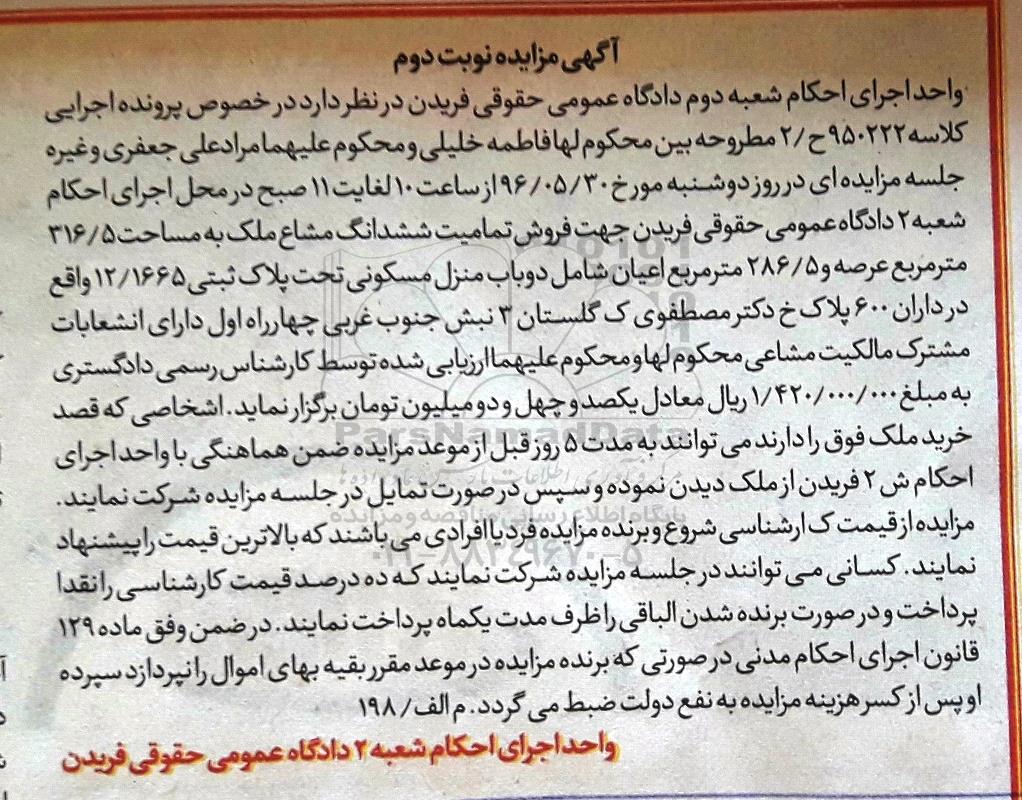 آگهی مزایده نوبت دوم
واحد اجرای احکام شعبه دوم دادگاه عمومی حقوقی فریدن در نظر دارد در خصوص پرونده اجرایی
کلاسه ۹۵۰۲۲۲ح/۲ مطروحه بین محکوم لها فاطمه خلیلی و محکوم علیهما مرادعلی جعفری و غیره
جلسه مزایده ای در روز دوشنبه مورخ ۹۶/۰۵/۳۰ از ساعت ۱۰ لغایت ۱۱ صبح در محل اجرای احکام
شعبه ۲ دادگاه عمومی حقوقی فریدن جهت فروش تمامیت ششدانگ مشاع ملک به مساحت ۳۱۶/۵
مترمربع عرصه و ۲۸۶/۵ مترمربع اعیان شامل دوباب منزل مسکونی تحت پلاک ثبتی ۱۲/۱۶۶۵ واقع
در داران ۶۰۰ پلاک خ دکتر مصطفوی ک گلستان ۳ نبش جنوب غربی چهارراه اول دارای انشعابات
مشترک مالکیت مشاعی محکوم لها و محکوم علیهما ارزیابی شده توسط کارشناس رسمی دادگستری
به مبلغ ۱/۴۲۰/۰۰۰/۰۰۰ ریال معادل یکصد و چهل و دو میلیون تومان برگزار نماید. اشخاصی که قصد
خرید ملک فوق را دارند می توانند به مدت ۵ روز قبل از موعد مزایده ضمن هماهنگی با واحد اجرای
احکام ش ۲ فریدن از ملک دیدن نموده و سپس در صورت تمایل در جلسه مزایده شرکت نمایند.
مزایده از قیمت ک ارشناسی شروع و برنده مزایده فرد یا افرادی می باشند که بالاترین قیمت را پیشنهاد
نمایند. کسانی می توانند در جلسه مزایده شرکت نمایند که ده درصد قیمت کارشناسی را نقدا
پرداخت و در صورت برنده شدن الباقی را ظرف مدت یکماه پرداخت نمایند. در ضمن وفق ماده ۱۲۹
قانون اجرای احکام مدنی در صورتی که برنده مزایده در موعد مقرر بقیه بهای اموال را نپردازد سپرده
او پس از کسر هزینه مزایده به نفع دولت ضبط می گردد. م الف/۱۹۸
واحد اجرای احکام شعبه ۲ دادگاه عمومی حقوقی فریدن
ParsNamadData
پایگاه اطلاع رسانی مناقصه و مزایده
۰۲۱-۸۸۳۴۹۶۷۰-۵